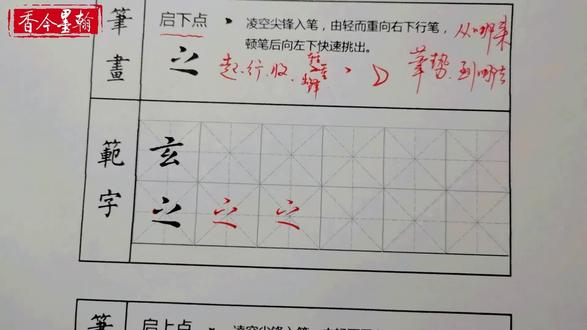 香今墨翰
筆畫
启下点
凌空尖锋入笔，由轻而重向右下行笔，
顿笔后向左下快速挑出。
从哪来
之
起.行.收.
筆势.到哪去
範字
玄
之 之 之
筆
启上点